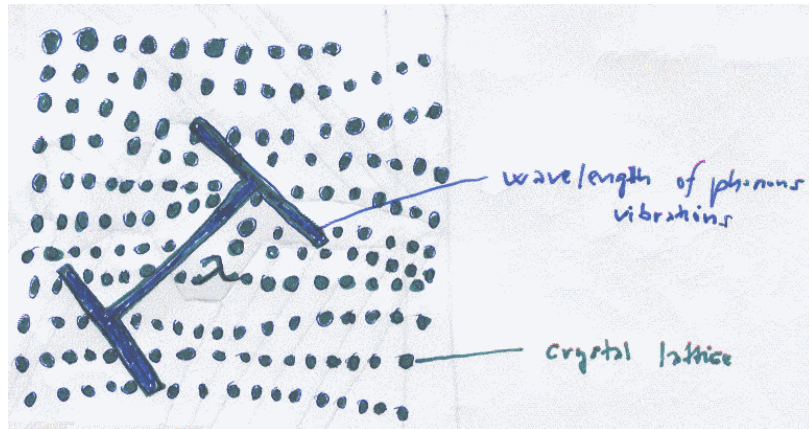 wavelength of phonons
vibrations
λ
crystal lattice